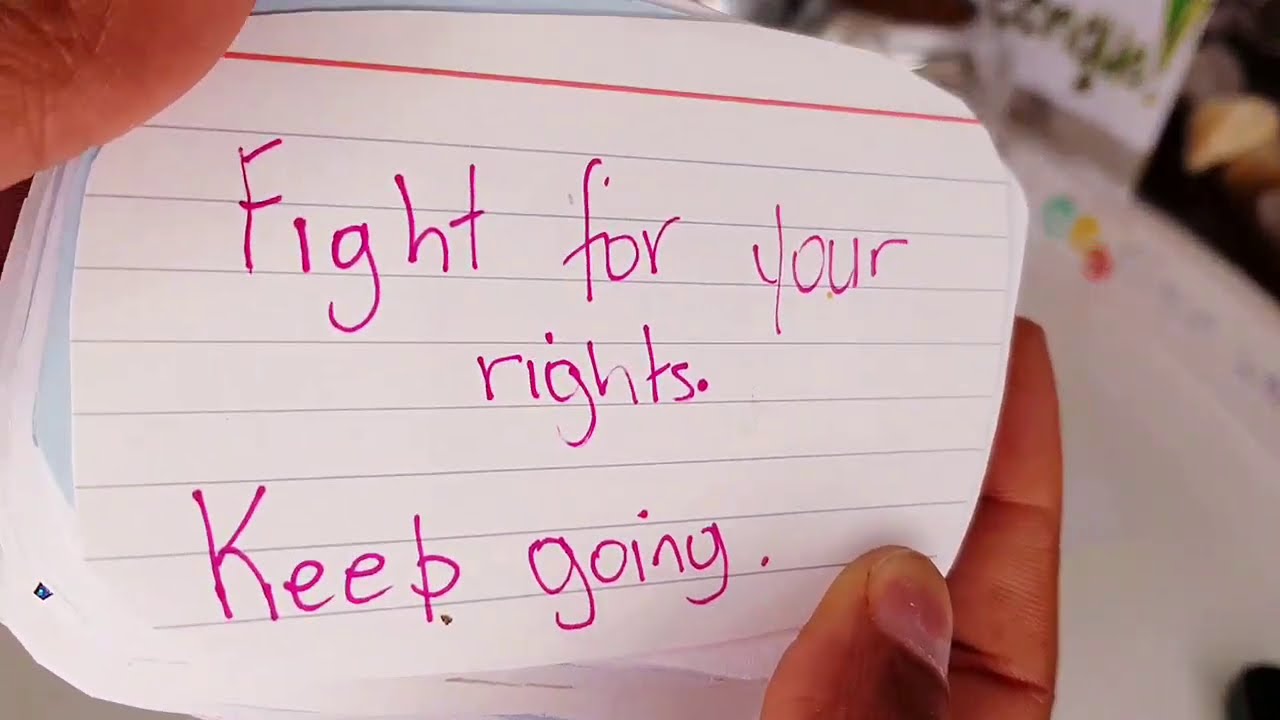 Fight for your
rights.
Keep going.